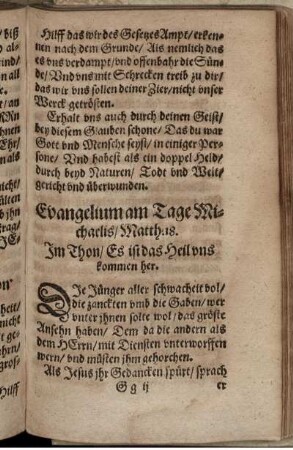 Hilff das wir des Gesetzes Ampt/ erken-
nen nach dem Grunde/ Als nemlich das
es vns verdampt/ vnd offenbahr die Sün-
de/ Vnd vns mit Schrecken treib zu dir/
das wir vns sollen deiner Zier/ nicht vnser
Werck getrösten.
Erhalt vns auch durch deinen Geist/
bey diesem Glauben schone/ Das du war
Gott vnd Mensche seyst/ in einiger Per-
sone/ Vnd habest als ein doppel Held/
durch beyd Naturen/ Todt vnd Welt/
gericht vnd überwunden.
Evangelium am Tage Mi-
chaelis/ Matth: 18.
Im Thon/ Es ist das Heil vns
kommen her.
DIe Jünger aller schwacheit vol/
die zanckten vmb die Gaben/ wer
vnter jhnen solte wol/ das gröste
Ansehn haben/ Dem da die andern als
dem HErrn/ mit Diensten vnterworffen
wern/ vnd müsten jhm gehorchen.
Als Jesus jhr Gedancken spürt/ sprach
G g ij er